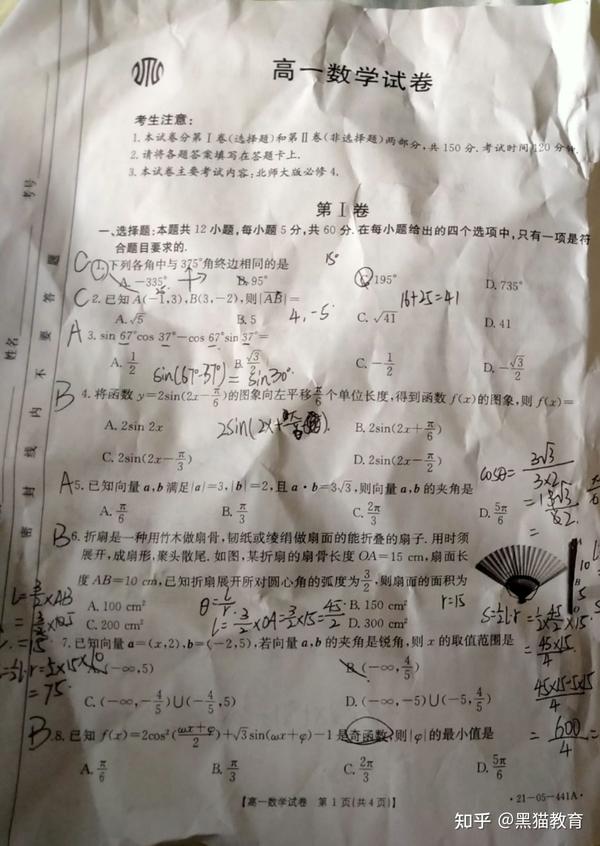 高一数学试卷
考生注意:
1.本试卷分第Ⅰ卷(选择题)和第Ⅱ卷(非选择题)两部分,共150分.考试时间120分钟.
2.请将各题答案填写在答题卡上.
3.本试卷主要考试内容:北师大版必修4.
第Ⅰ卷
一、选择题:本题共12小题,每小题5分,共60分.在每小题给出的四个选项中,只有一项是符
合题目要求的.
15°
C 1.下列各角中与375°角终边相同的是
A.-335° B.95° C.195° D.735°
C 2.已知A(-1,3),B(3,-2),则|AB|= 4,-5 16+25=41
A.√5 B.5 C.√41 D.41
A 3.sin 67°cos 37°-cos 67°sin 37°=
A.1/2 B.√3/2 C.-1/2 D.-√3/2
sin(67°-37°)=sin30°
B 4.将函数y=2sin(2x-π/6)的图象向左平移π/6个单位长度,得到函数f(x)的图象,则f(x)=
A.2sin 2x 2sin(2x+ B.2sin(2x+π/6)
C.2sin(2x-π/3) D.2sin(2x-π/2)
cosθ=3√3/3×2
A 5.已知向量a,b满足|a|=3,|b|=2,且a·b=3√3,则向量a,b的夹角是
A.π/6 B.π/3 C.2π/3 D.5π/6
B 6.折扇是一种用竹木做扇骨,韧纸或绫绢做扇面的能折叠的扇子.用时须
展开,成扇形,聚头散尾.如图,某折扇的扇骨长度OA=15 cm,扇面长
度AB=10 cm,已知折扇展开所对圆心角的弧度为3/2,则扇面的面积为
A.100 cm² θ=l/r B.150 cm² r=15
C.200 cm² l=3/2×OA=3/2×15=45/2 D.300 cm²
10
5
S=½l·r=½×45/2×15
=45×15/4
45×15-5×15/4
=600/4=
l=3/2×AB
=15
=75
7.已知向量a=(x,2),b=(-2,5),若向量a,b的夹角是锐角,则x的取值范围是
A.(-∞,5) B.(-∞,4/5)
C.(-∞,-4/5)∪(-4/5,5) D.(-∞,-5)∪(-5,4/5)
B 8.已知f(x)=2cos²(ωx+φ/2)+√3sin(ωx+φ)-1是奇函数,则|φ|的最小值是
A.π/6 B.π/3 C.2π/3 D.5π/6
【高一数学试卷 第1页(共4页)】
·21-05-441A·
考号
姓名
密封线内不要答题
知乎 @黑猫教育